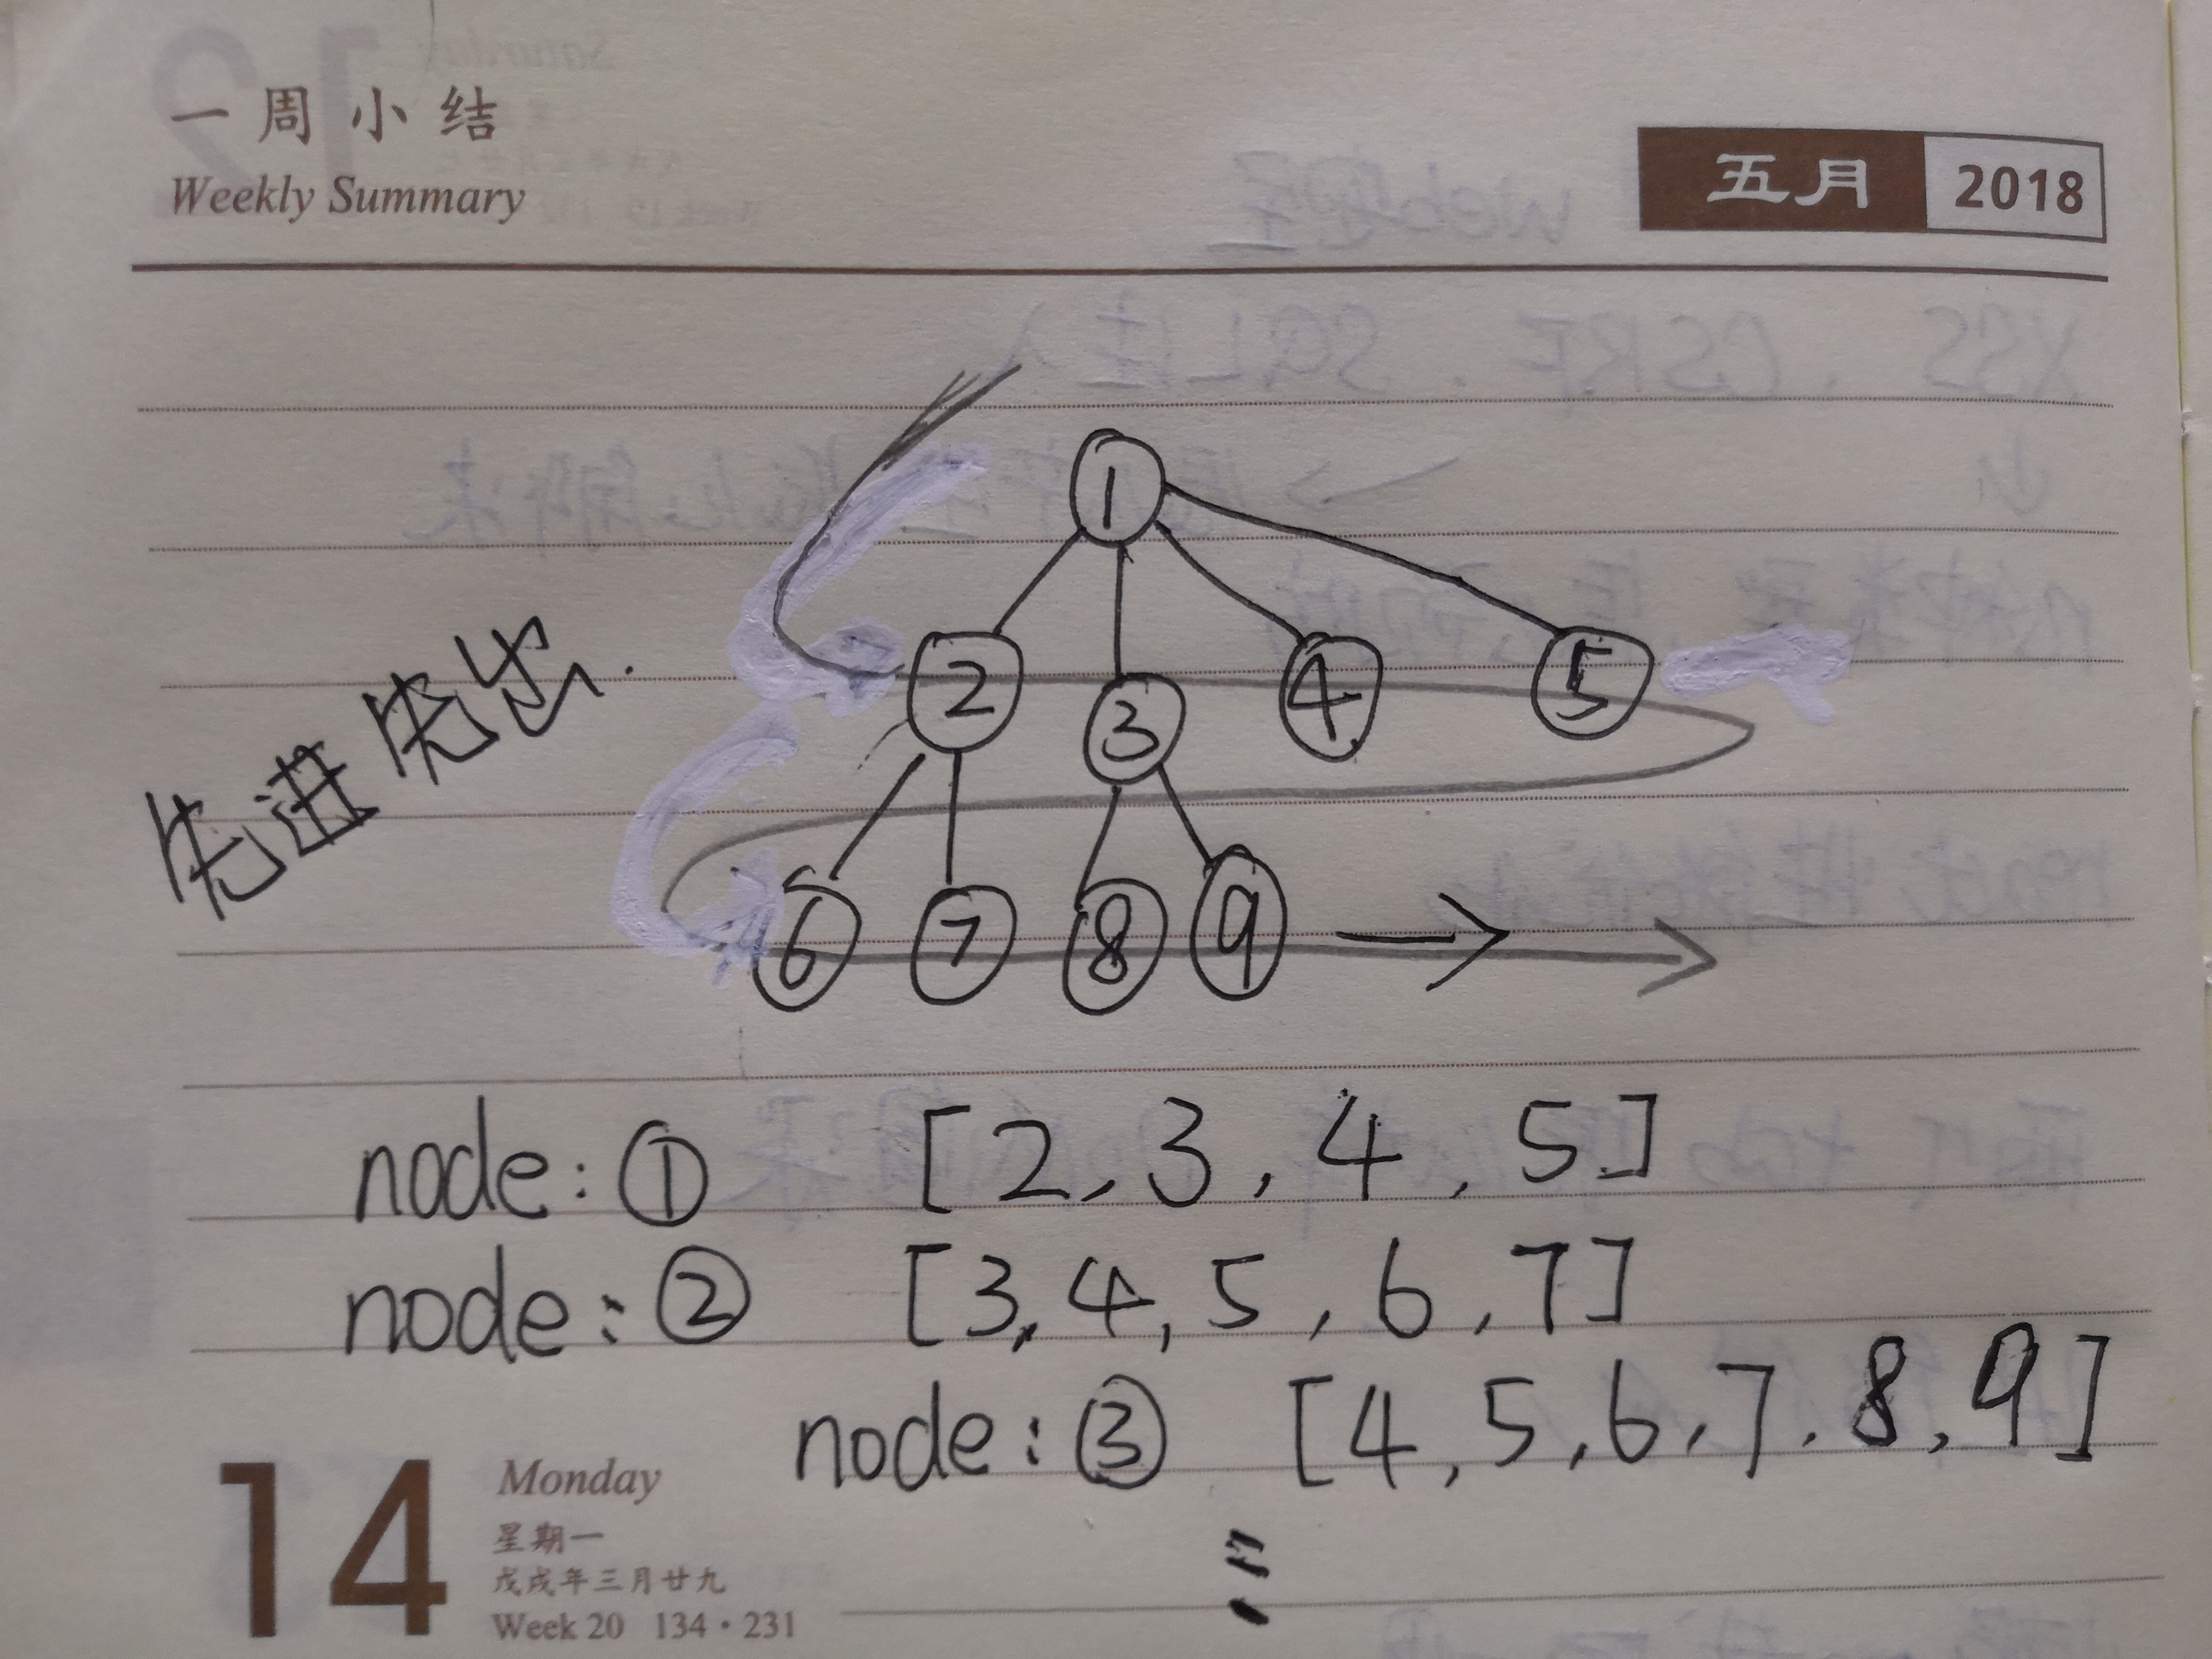 一周小结
Weekly Summary
五月 2018
1
2 3 4 5
先进先出.
6 7 8 9
node: ① [2, 3, 4, 5]
node: ② [3, 4, 5, 6, 7]
node: ③ [4, 5, 6, 7, 8, 9]
14
Monday
星期一
戊戌年三月廿九
Week 20 134·231